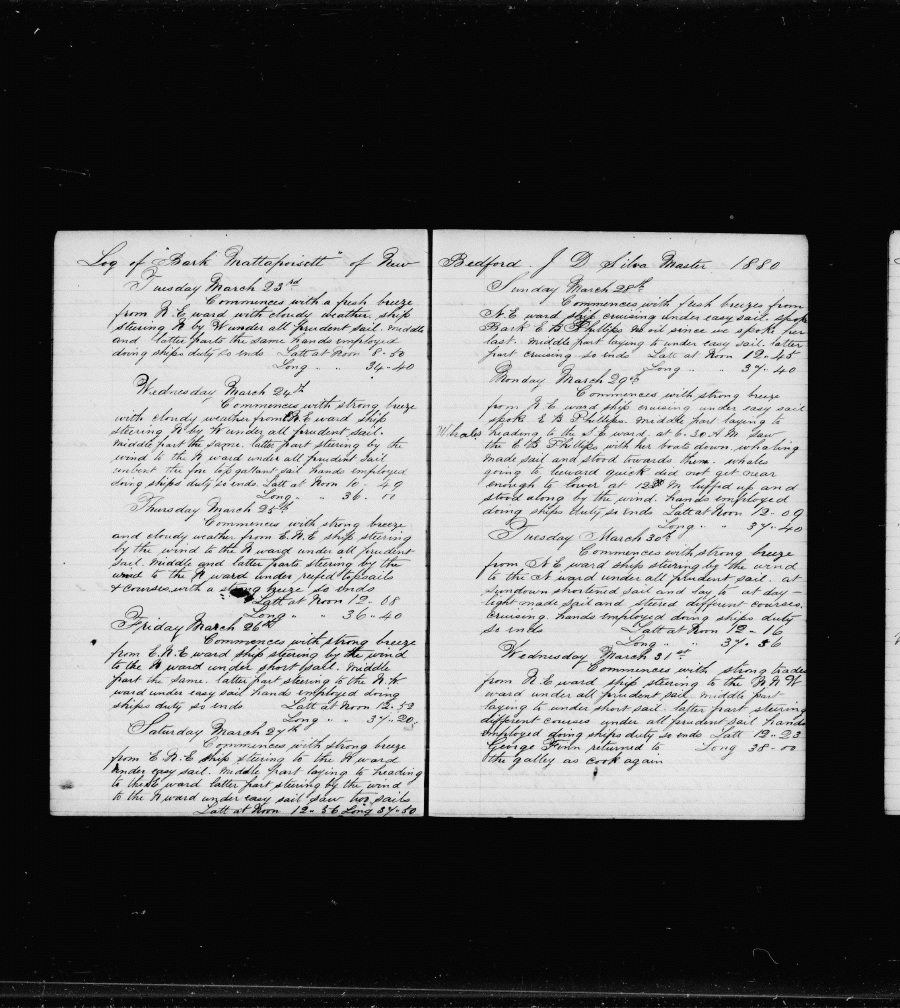 Log of "Bark Mattapoisett" of New
Tuesday March 23rd
Commences with a fresh breeze
from N.E ward with cloudy weather. ship
steering N by W under all prudent sail. middle
and latter parts the same hands employed
doing ships duty so ends Latt at Noon 8-50
Long " " 34-40
Wednesday March 24th
Commences with strong breeze
with cloudy weather from N.E ward ship
steering N by W under all prudent sail.
middle part the same. latter part steering by the
wind to the N ward under all prudent sail
unbent the fore top gallant sail hands employed
doing ships duty so ends. Latt at Noon 10-49
Long " " 36-11
Thursday March 25th
Commences with strong breeze
and cloudy weather from E.N.E ship steering
by the wind to the N ward under all prudent
sail. middle and latter parts steering by the
wind to the N ward under reefed topsails
& courses with a strong breeze so ends
Latt at Noon 12-08
Long " " 36-40
Friday March 26th
Commences with strong breeze
from E.N.E ward ship steering by the wind
to the N ward under short sail. middle
part the same. latter part steering to the N.W
ward under easy sail hands employed doing
ships duty so ends Latt at Noon 12-52
Long " " 37-20
Saturday March 27th
Commences with strong breeze
from E N.E ship steering to the N ward
under easy sail. middle part laying to heading
to the E ward latter part steering by the wind
to the N ward under easy sail saw two sails
Latt at Noon 12-56 Long 37-50
Bedford J D Silva Master 1880
Sunday March 28th
Commences with fresh breezes from
N.E ward ship cruising under easy sail. spoke
Bark E B Phillips no oil since we spoke her
last. middle part laying to under easy sail. latter
part cruising. so ends Latt at Noon 12-45
Long " " 37-40
Monday March 29th
Commences with strong breeze
from N.E ward ship cruising under easy sail
spoke E B Phillips. middle part laying to
Whales heading to the S.E ward. at 6-30 A M saw
the E B Phillips with her boats down whaling
made sail and stood towards them. whales
going to leeward quick did not get near
enough to lower at 12 M luffed up and
stood along by the wind. hands employed
doing ships duty so ends Latt at Noon 12-09
Long " " 37-40
Tuesday March 30th
Commences with strong breeze
from N.E ward ship steering by the wind
to the N ward under all prudent sail. at
sundown shortened sail and lay to at day-
light made sail and steered different courses.
cruising. hands employed doing ships duty
so ends Latt at Noon 12-16
Long " " 37-36
Wednesday March 31st
Commences with strong trades
from N.E ward ship steering to the N.N.W
ward under all prudent sail middle part
laying to under short sail. latter part steering
different courses under all prudent sail hands
employed doing ships duty so ends Latt 12-23
George Finn returned to Long 38-00
the galley as cook again